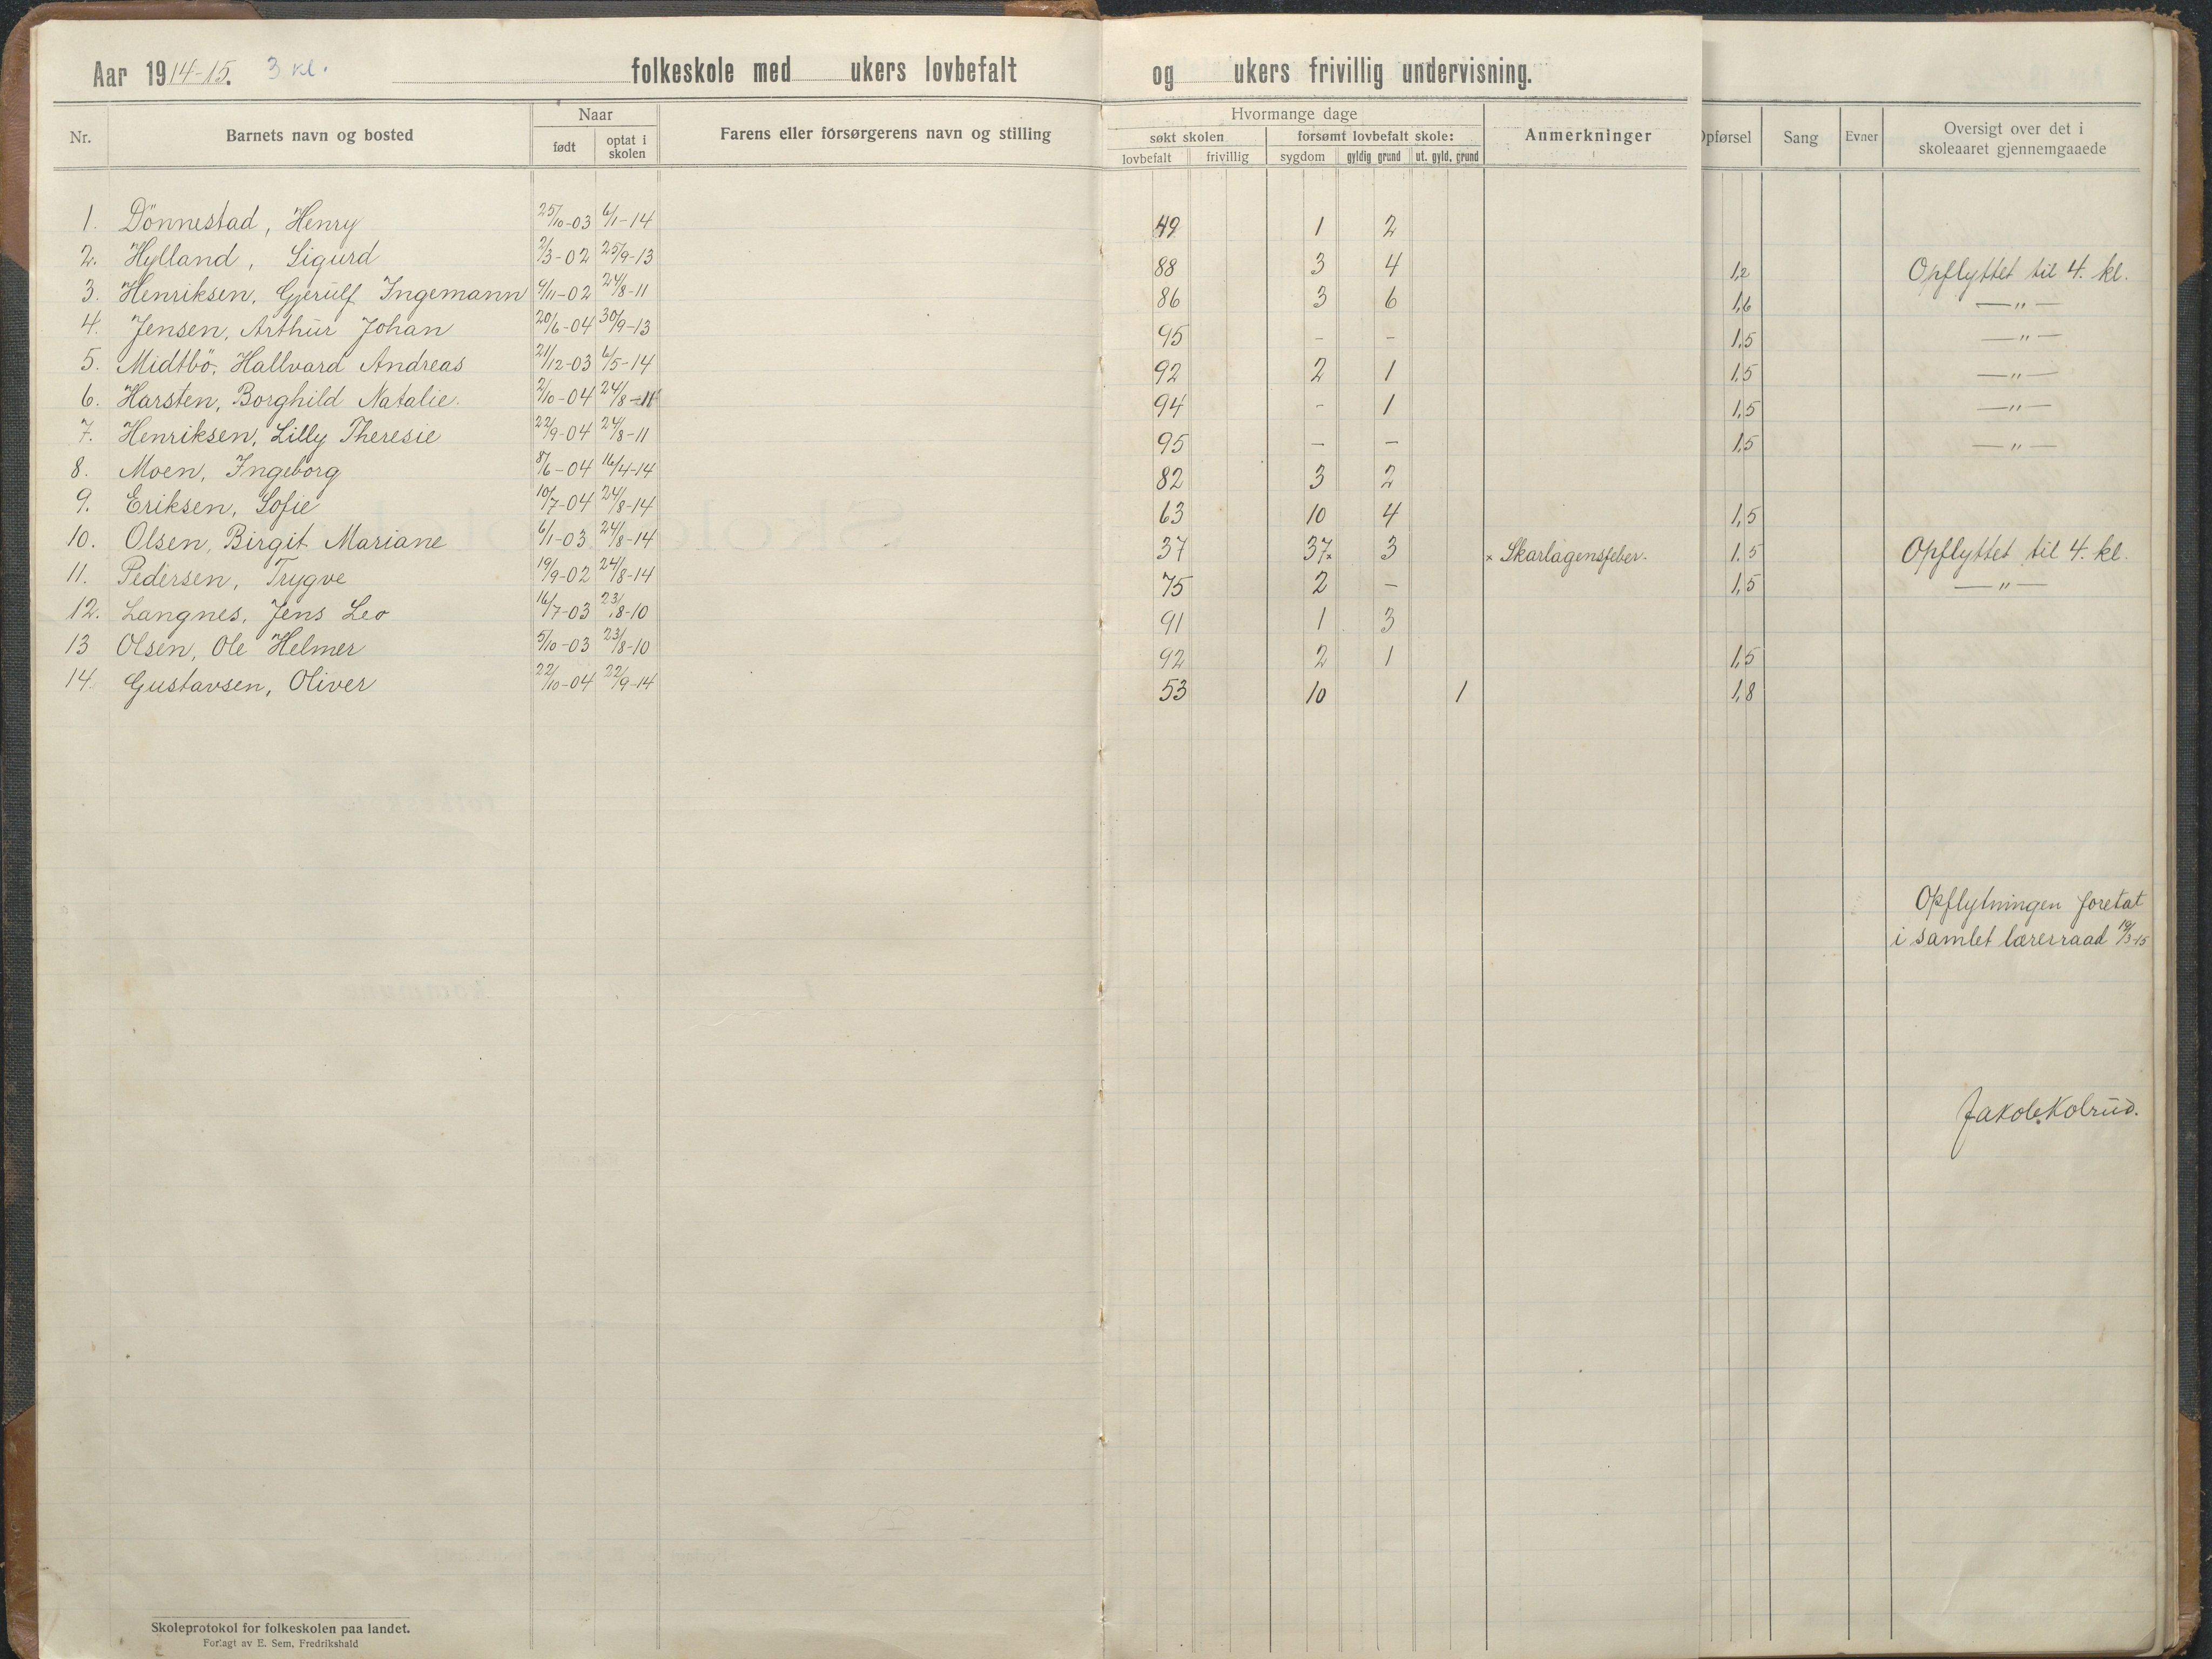 Aar 1914-15. 3 kl. folkeskole med ukers lovbefalt og ukers frivillig undervisning.
Nr. Barnets navn og bosted Naar født optat i skolen Farens eller forsørgerens navn og stilling Hvormange dage søkt skolen lovbefalt frivillig forsømt lovbefalt skole: sygdom gyldig grund ut. gyld. grund Anmerkninger Opførsel Sang Evner Oversigt over det i skoleaaret gjennemgaaede
1. Dönnestad, Henry 25/10-03 6/1-14 49 1 2
2. Hylland, Sigurd 2/3-02 25/9-13 88 3 4 1,2 Opflyttet til 4. kl.
3. Henriksen, Gjerulf Ingemann 9/11-02 24/8-11 86 3 6 1,6 — " —
4. Jensen, Arthur Johan 20/6-04 30/9-13 95 - - 1,5 — " —
5. Midtbö, Hallvard Andreas 21/12-03 6/5-14 92 2 1 1,5 — " —
6. Harsten, Borghild Natalie. 2/10-04 24/8-11 94 - 1 1,5 — " —
7. Henriksen, Lilly Theresie 22/9-04 24/8-11 95 - - 1,5 — " —
8. Moen, Ingeborg 8/6-04 16/4-14 82 3 2
9. Eriksen, Sofie 10/7-04 24/8-14 63 10 4 1,5
10. Olsen, Birgit Mariane 6/1-03 24/8-14 37 37x 3 x Skarlagensfeber. 1.5 Opflyttet til 4. kl.
11. Pedersen, Trygve 19/9-02 24/8-14 75 2 - 1,5 — " —
12. Langnes, Jens Leo 16/7-03 23/8-10 91 1 3
13 Olsen, Ole Helmer 5/10-03 23/8-10 92 2 1 1,5
14. Gustavsen, Oliver 22/10-04 22/9-14 53 10 1 1,8
Opflytningen foretat
i samlet lærerraad 19/3-15
Jakob Kolrud.
Skoleprotokol for folkeskolen paa landet.
Forlagt av E. Sem, Fredrikshald